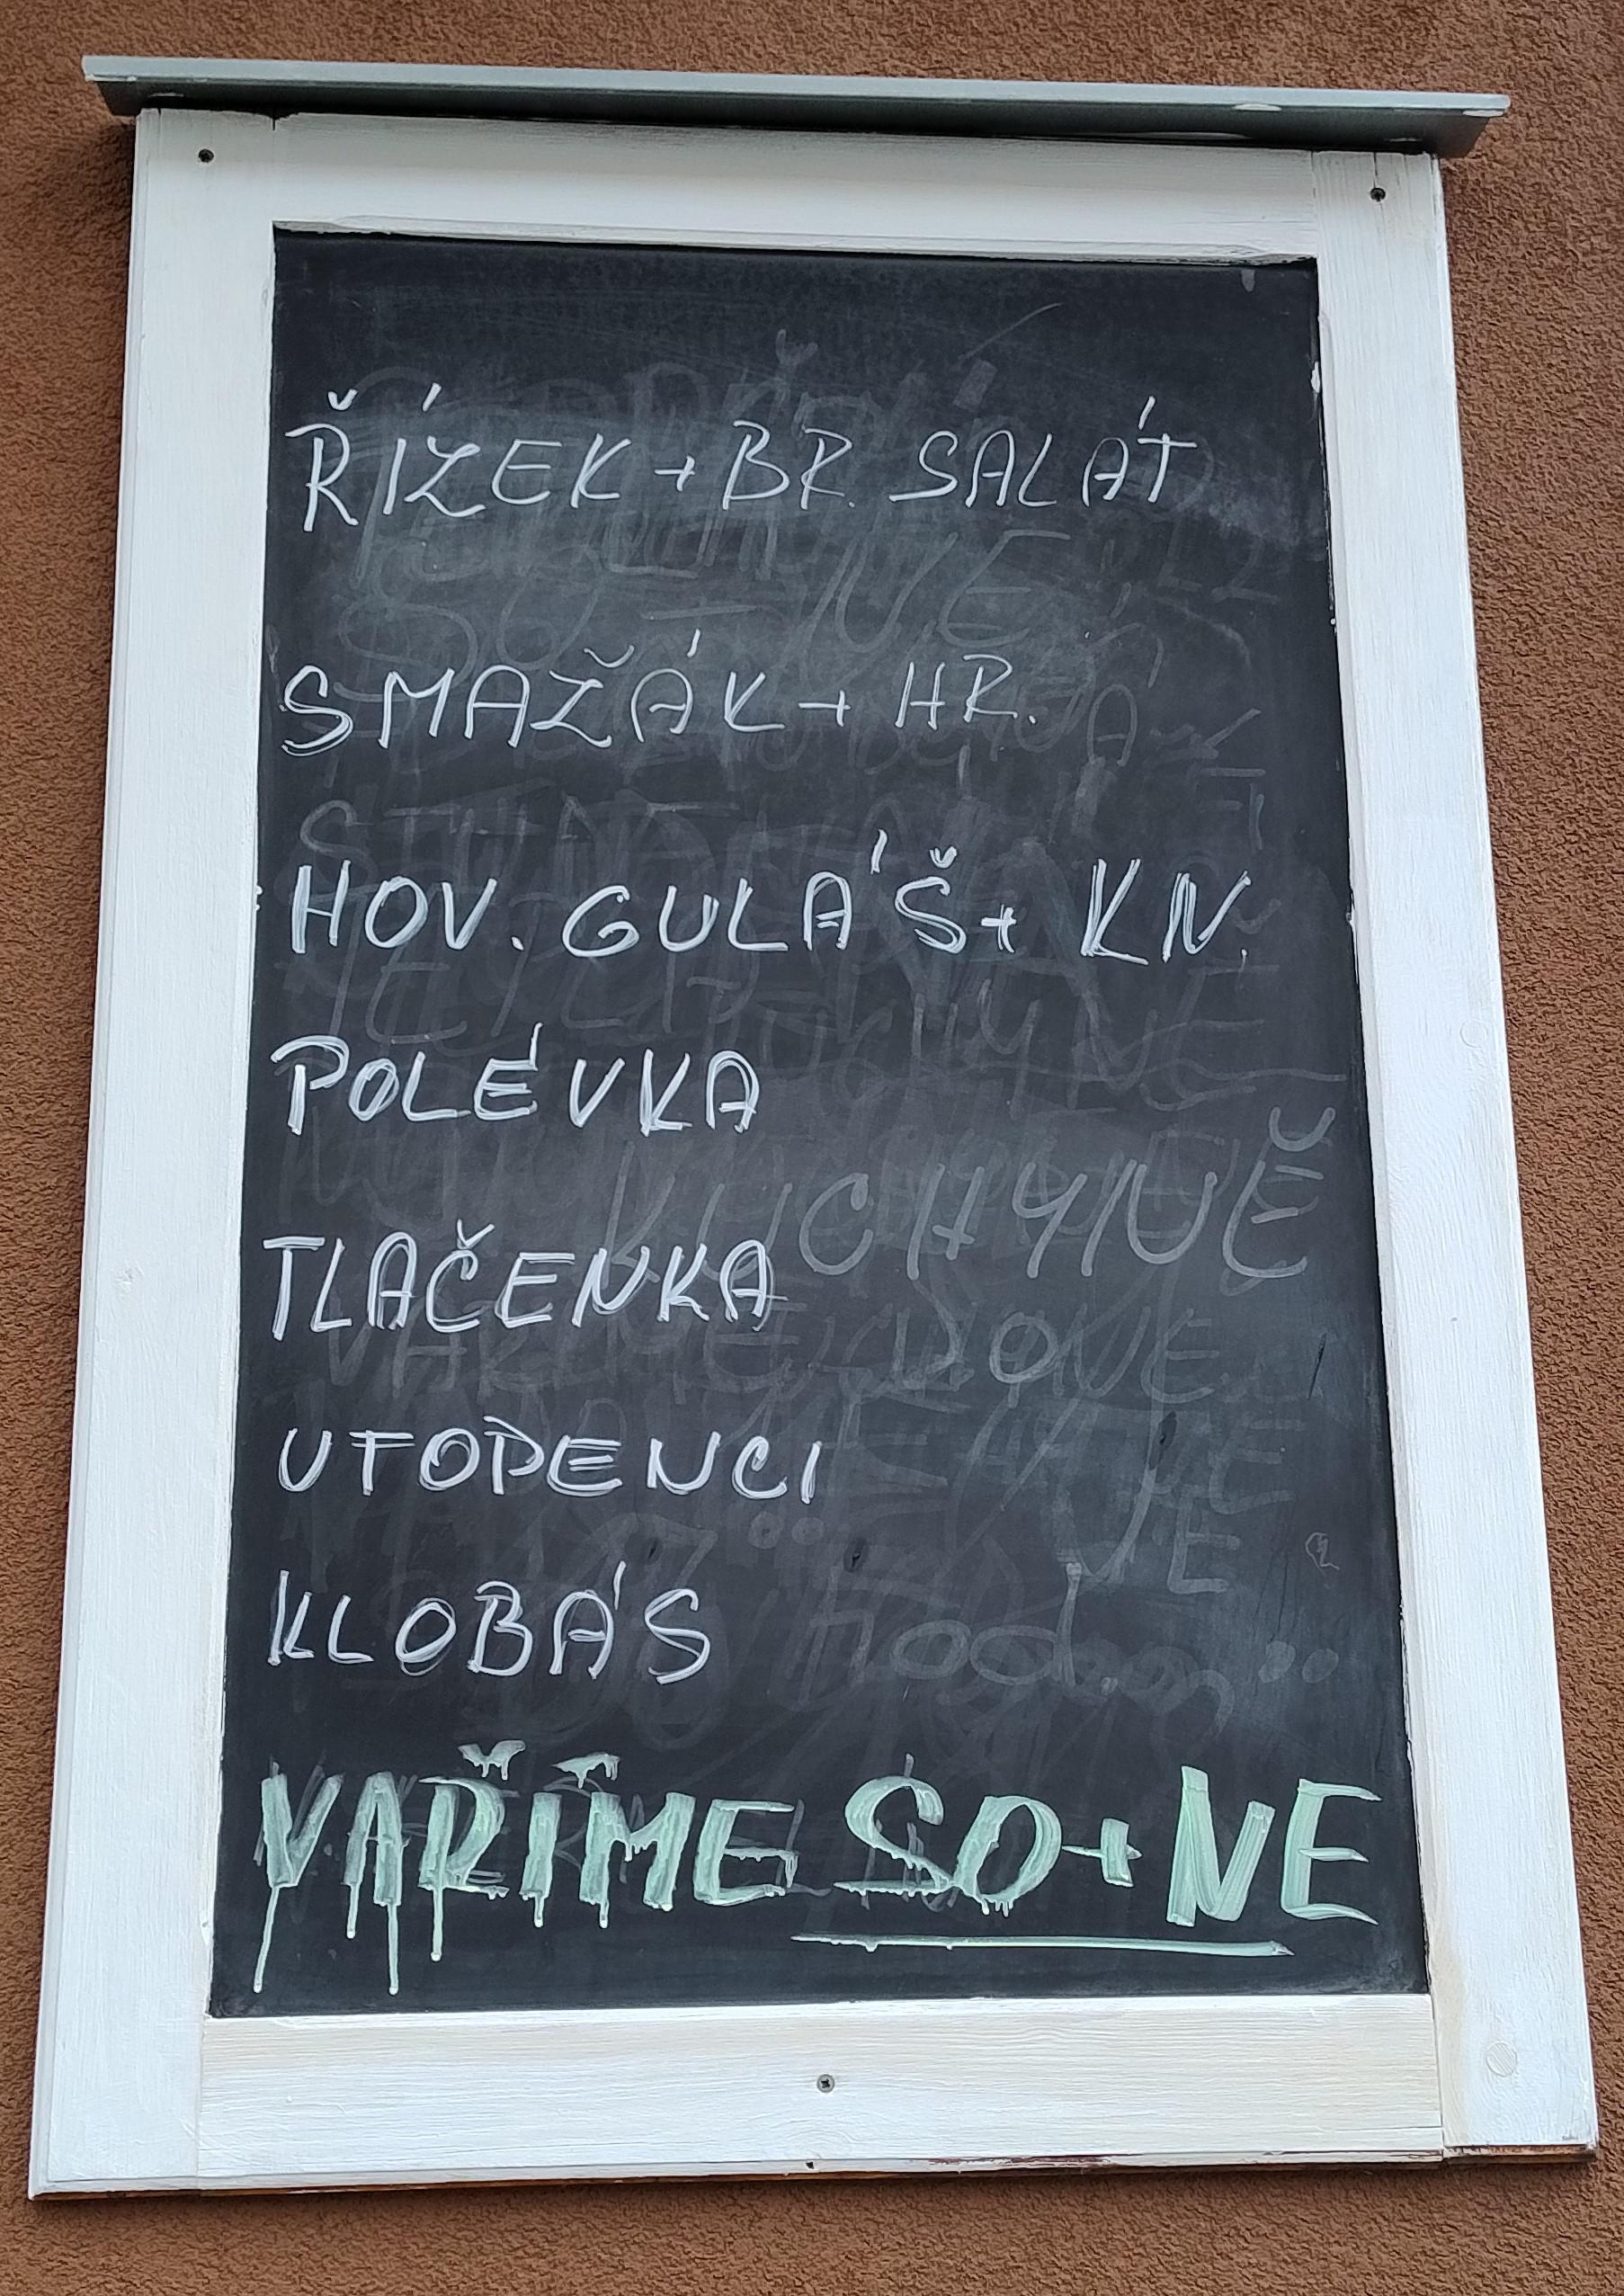 ŘÍZEK + BR. SALÁT
SMAŽÁK + HR.
HOV. GULÁŠ + KN.
POLÉVKA
TLAČENKA
KUCHYNĚ
UTOPENCI
KLOBÁS
VAŘÍME SO + NE